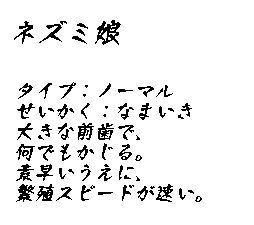 ネズミ娘
タイプ：ノーマル
せいかく：なまいき
大きな前歯で、
何でもかじる。
素早いうえに、
繁殖スピードが速い。